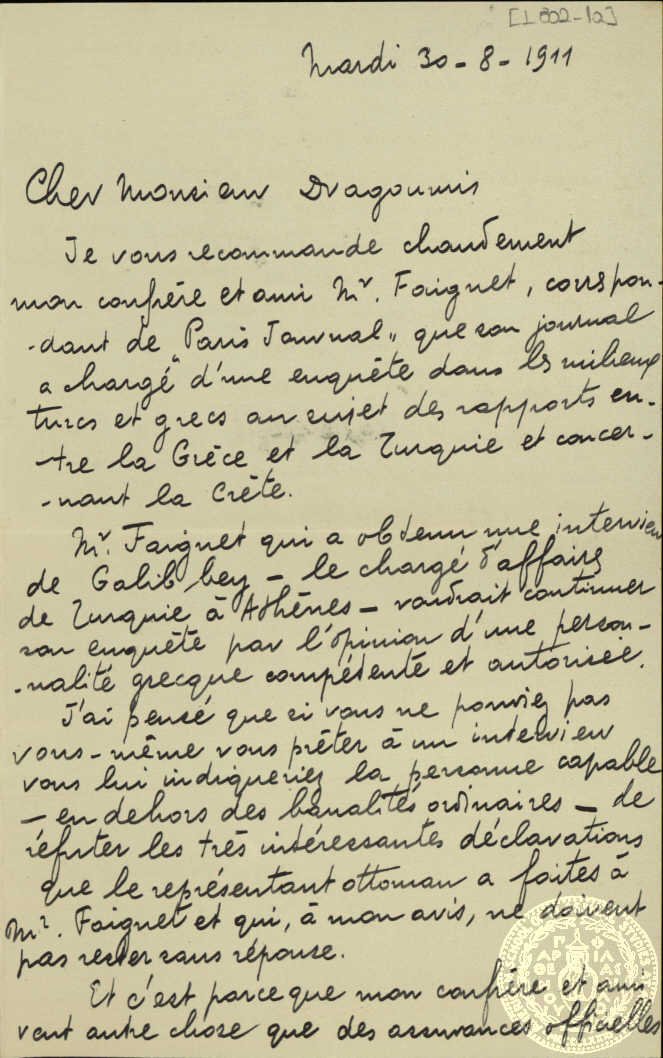 [I 802-1a]
Mardi 30 - 8 - 1911
Cher Monsieur Dragoumis
Je vous recommande chaudement
mon confrère et ami Mr. Faignet, correspon-
-dant de "Paris Journal" que son journal
a chargé d'une enquête dans les milieux
turcs et grecs au sujet des rapports en-
-tre la Grèce et la Turquie et concer-
-nant la Crète.
Mr. Faignet qui a obtenu une interview
de Galib bey - le chargé d'affaires
de Turquie à Athènes - voudrait continuer
son enquête par l'opinion d'une person-
-nalité grecque compétente et autorisée.
J'ai pensé que si vous ne pouviez pas
vous-même vous prêter à un interview
vous lui indiqueriez la personne capable
- en dehors des banalités ordinaires - de
réfuter les très intéressantes déclarations
que le représentant ottoman a faites à
Mr. Faignet et qui, à mon avis, ne doivent
pas rester sans réponse.
Et c'est parce que mon confrère et ami
veut autre chose que des assurances officielles